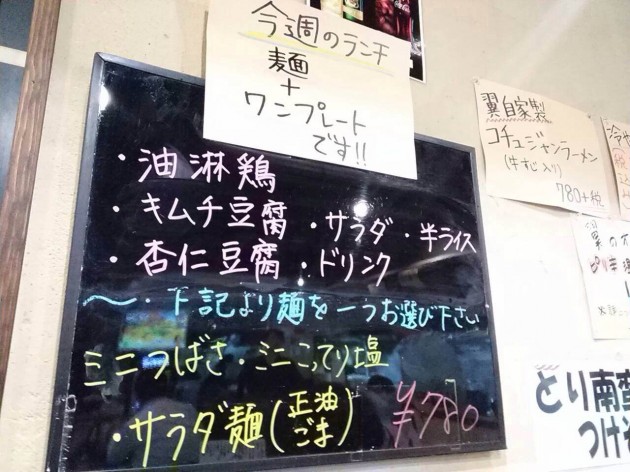 今週のランチ
麺
+
ワンプレート
です!!
・油淋鶏
・キムチ豆腐 ・サラダ ・半ライス
・杏仁豆腐 ・ドリンク
〜・下記より麺を一つお選び下さい
ミニつばさ・ミニこってり塩
・サラダ麺(正油 ごま) ¥780
翼自家製
コチュジャンラーメン
(牛すじ入り)
780+税
冷や
とり南蛮
つけそ